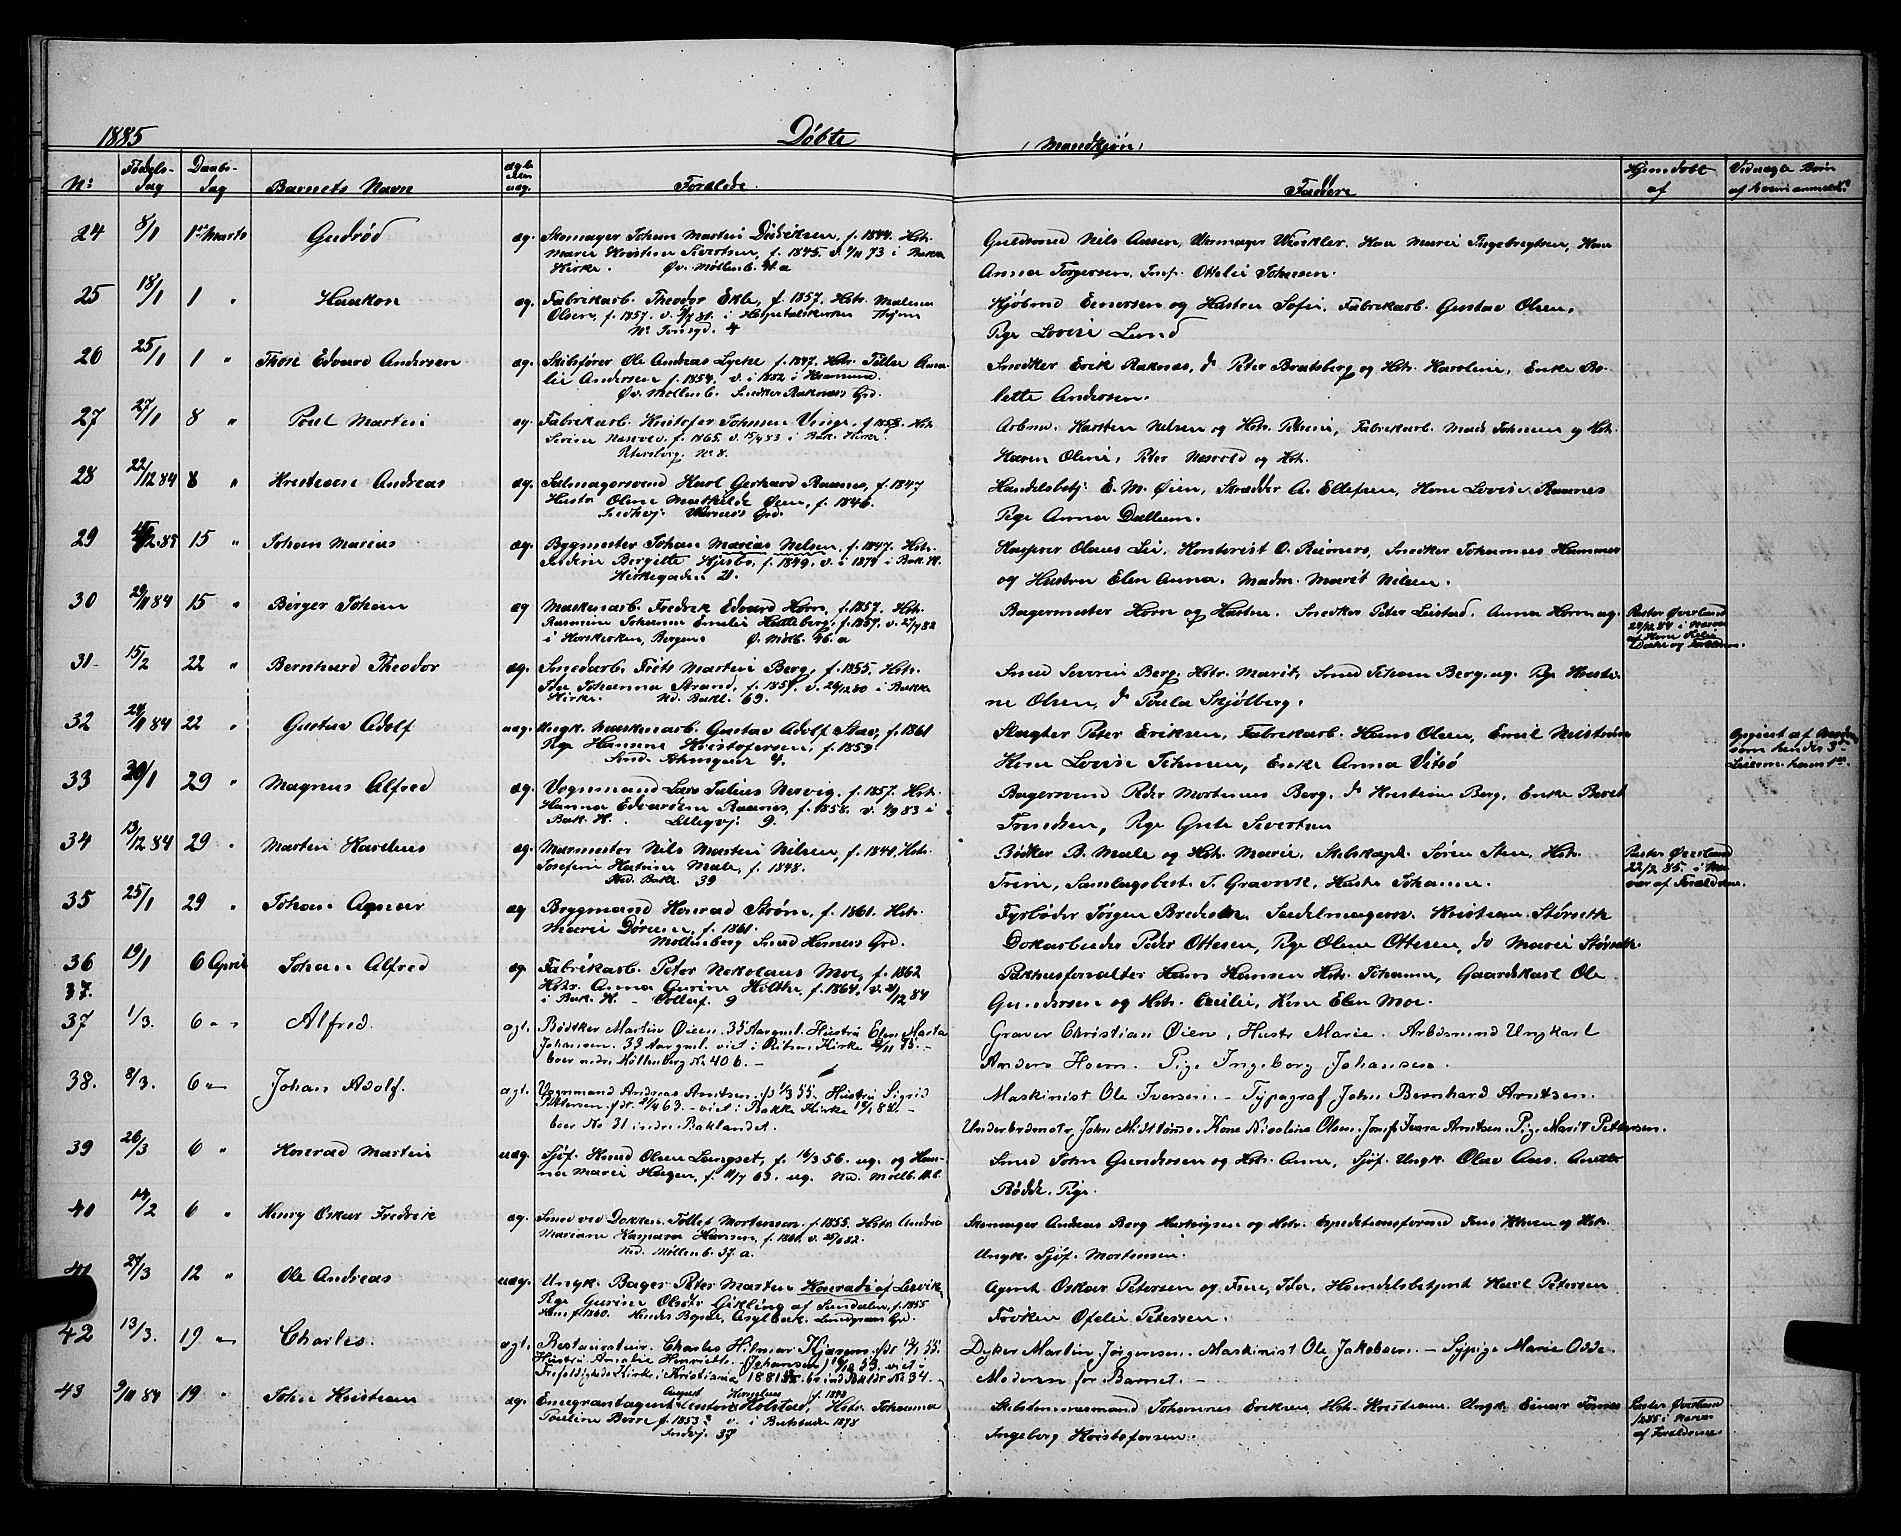 1885
Døbte
(Mandkjøn)
Nº Fødselsdag Daabsdag Barnets Navn ægte eller uæg. Forældre. Faddere Hjemdøbt af Vidnægte Børn af hvem anmeldt
24 8/1 1ste Marts Gudrød æg. Skomager Johan Martin Didriksen, f. 1844. Hstr.
Marie Kristine Sivertsen, f. 1845. v. 73 i Bakke
Kirke. Øv. Møllenb. 41 a
Guldsmed Nils Aasen, Urmager Winkler. Kone Marie Ingebregtsen, Kone
Anna Torgersen, Jmf. Ottelie Johansen.
25 18/1 1 " Haakon æg. Fabrikarb. Theodor Ekle, f. 1857. Hstr. Malena
Olsen, f. 1857. v. 81. i Hospitalskirken Thjem
Nº 4
Kjøbmd Einersen og Hustru Sofie, Fabrikarb. Gustav Olsen,
Pige Lovise Lund
26 25/1 1 " Thore Edvard Andersen æg. Skibsfører Ole Andreas Lycke f. 1847. Hstr. Tella Ama-
lie Andersen f. 1854. v. i 1882 i Krsund.
Øv. Møllenb. Snedker Raknæs Grd.
Snedker Erik Raknæs, do Peter Bratsberg og Hstr. Karoline, Enke Bo-
lette Andersen.
27 27/1 8 " Poul Martin æg. Fabrikarb. Kristofer Johnsen Vinge, f. 1858. Hst.
f. 1865. v. 15/4 83 i Bak. Kirke.
Petersborg. Nº 8.
Arbmd. Karsten Nelsen og Hstr. Petrine, Fabrikarb. Mads Johnsen og Hstr.
Karen Oline, Peter Næsvold og Hstr.
28 22/12 84 8 " Kristian Andreas æg. Salmagersvend Karl Gerhard Raanes, f. 1847
Hustr. Oline Mathilde Øien, f. 1846.
Indhvj. Værnes Grd.
Handelsbetj. E. M. Øien, Skrædder A. Ellefsen, Kone Lovise Raanes
Pige Anna Dallum.
29 15 " Johan Marius æg. Bygmester Johan Marius Nilsen, f. 1847. Hstr.
Jendine Bergitte Hjelsbo, f. 1849. v. i 1874 i Bak. K.
Kirkegaden 21.
Kasper Olaus Lie, Kontorist O. Reimers, Snedker Johannes Hammer
og Hustru Elen Anna, Madm. Marit Nilsen.
30 29/11 84 15 " Birger Johan æg Maskinarb. Fredrik Edvard Horn, f. 1857. Hstr.
Rasmine Johanna Emelie Hetleberg, f. 1857. v. 27/4 82
i Korskirken, Bergen. Ø. Møllb. 46. a
Bagermester Horn og Hustru. Snedker Peter Leistad. Anna Horn ug.
Pastor Øverland
28/12 84 i Nærv.
af Kone
og Forældrene.
31 15/2 22 " Bernhard Theodor æg. Smedarb. Frits Martin Berg, f. 1855. Hstr.
Ida Johanna Strand, f. 1857. v. 26/12 80 i Bakke
Kirke. Nd. Bakl. 69.
Smed Severin Berg, Hstr. Marit, Smed Johan Berg, ug. Pige Kristi-
ne Olsen, do Paula Skjølberg.
32 28/11 84 22 " Gustav Adolf uæg. Ungk. Maskinarb. Gustav Adolf Stav, f. 1861
Pige Hansine Kristofersen, f. 1859.
4.
Slagter Peter Eriksen, Fabrikarb. Hans Olsen, Emil Nistrøm
Kone Lovise Johnsen, Enke Anna Vitsø
Opgivet af Moderen
som hendes 3die
Leierm. hans 1ste.
33 30/1 29 " Magnus Alfred æg. Vognmand Lars Julius Nervig, f. 1857. Hstr.
Hanna Edvardine Raanes, f. 1858. v. 4/9 83 i
Bak. K. Lillegvj. 9.
Bagersvend Peder Mortinus Berg, do Kristian Berg, Enke Beret
Trondsen, Pige Grete Sivertsen
34 13/12 84 29 " Martin Karelius æg. Murmester Nils Martin Nilsen, f. 1841. Hstr.
Josefine Katrine Male, f. 1848.
Ned. Bakl. 39
Bødker B. Male og Hstr. Marie, Skibskapt. Søren Sten, Hstr.
Trine, Samlagsbest. J. Gravrok, Hustr. Johanne.
Pastor Øverland
22/2 85. i Næ-
vær af Forældrene.
35 25/1 29 " Johan Agnar æg Brygmand Konrad Strøm, f. 1861. Hstr.
Marie Dorum, f. 1861.
Møllenberg Smed Horners Grd.
Fyrbøder Jørgen Bredesen. Sadelmagersv. Kristian Størseth
Dokarbeider Peder Ottesen, Pige Oline Ottesen, do Marie Størseth.
36 19/1 6 April Johan Alfred æg Fabrikarb. Peter Nikolaus Moe, f. 1862
Hstr. Anna Gurine Holthe, f. 1864. v. 21/12 84
i Bak. K. 9
Pakhusforvalter Hans Hansen Hstr. Johanna, Gaardskarl Ole
Gundersen og Hstr. Cecilie, Kone Elen Moe.
37.
37 1/3. 6 " " Alfred. ægt. Bødtker Martin Øien. 35 Aar gml. Hustru Elen Marta
Johansen. 33 Aar gml. viet i Ihlens Kirke 75. -
boer nedre Møllenberg Nº 40 b. -
Graver Christian Øien, Hustr. Marie. Arbdsmand Ungkarl
Anders Hoem. Pige Ingeborg Johansen.
38. 8/3. 6 " Johan Adolf. ægt. Vognmand Andreas Arntsen. fd 1/3 55. Hustru Sigrid
Pettersen. fdt. 21/4 63. - viet i Bakke Kirke 18/1 84. -
boer No 31 i ndre Baklandet.
Maskinist Ole Iversen. - Typograf John Bernhard Arntsen.
Underbrdmstr. John Midttømme. Kone Nicoline Olsen. Jomf. Ivara Arntsen. Pige Marit Pettersen.
39 26/3 6 " Konrad Martin uæg. Sjøf. Knud Olsen Langset, f. 16/3 56. ug. og Han-
na Marie Haugen, f. 11/7 63. ug. Nd. Møllb. 11. b.
Smed John Gundersen og Hstr. Anne, Sjøf. Ungk. Olav Aas. Anette
Rødde. Pige.
40 14/2 6 " Henry Oskar Fredrik æg. Smed ved Dokken. Tollef Mortensen. f. 1855. Hstr. Andrea
Mariane Kaspara Hansen, f. 1861. v. 25/6 82.
Ned. Møllenb. 37. a.
Skomager Andreas Berg Hartvigsen og Hstr. Expeditionsformd Jens Iversen og Hstr.
Ungk. Sjøf. Mortensen.
41 27/3 12 " Ole Andreas uæg. Ungk. Bager Peter Martin Konradi af Leksvik
Pige Gurine Olsdtr. Gikling af Sundalen, f. 1855
Ham f. 1860. Hendes Bopæl, Asylbak. Lundgrens Grd.
Agent Oskar Petersen og Frue, Ida, Handelsbetjent Karl Petersen
Frøken Ofelie Petersen.
42 13/3. 19 " Charles. ægt. Restauratør. Charles Hilmar Kjærem. fdt 12/1 55.
Hustru Amalie Henriette (Johansen) 16/12 53. viet i
Trefoldigheds Kirke i Kristiania 1881. br. ind Bkldr Nº 34. -
Dyker Martin Jørgensen. Maskinist Ole Jakobsen. - Sypige Marie Odde.
Moderen for Barnet. -
43 9/11 84 19 " John Kristian æg. Emigrantagent August Anton Kornelius Holstad, f. 1843 Hstr. Johanna
Pauline Borre f. 1853? v. i Bakstader 1878
Indvj. 37
Skibstømmermand Johannes Eriksen Hstr. Kristiane. Ungk. Einar Fornæs
Ingeborg Kristofersen.
Pastor Øverland
85 i Nærv.
af Forældrene